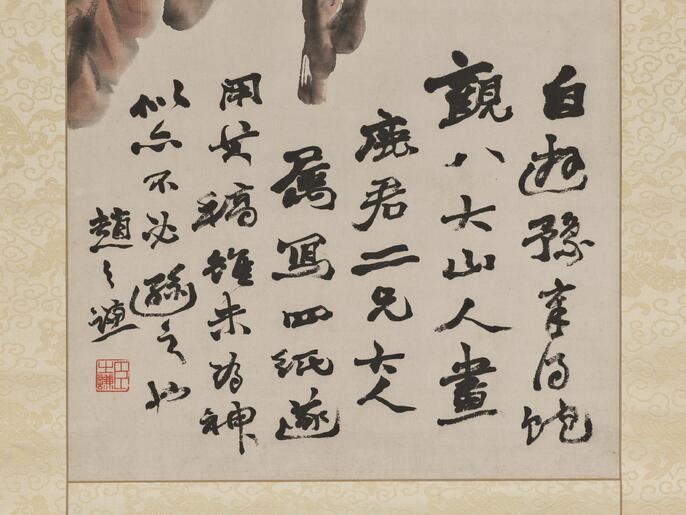 自遊豫章得飽
觀八大山人畫
鹿君二兄大人
屬寫四紙遂
用其稿雖未為神
似亦不必遜之也
趙之謙